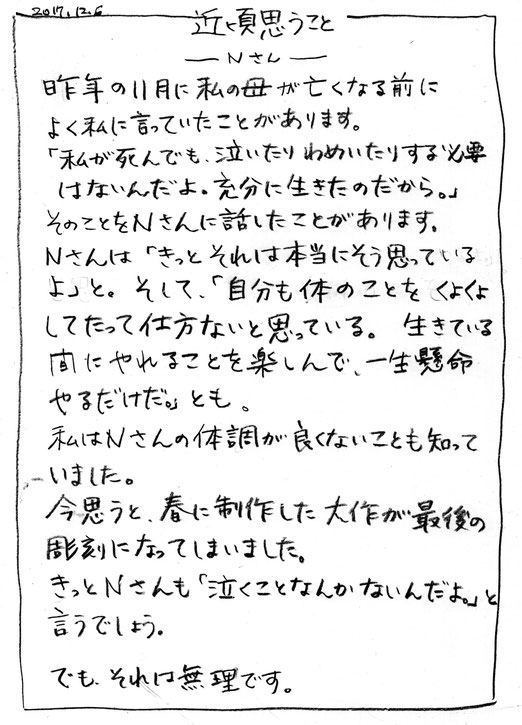 2017.12.6
近頃思うこと
—Nさん—
昨年の11月に私の母が亡くなる前に
よく私に言っていたことがあります。
「私が死んでも、泣いたりわめいたりする必要
はないんだよ。充分に生きたのだから。」
そのことをNさんに話したことがあります。
Nさんは「きっとそれは本当にそう思っている
よ」と。そして、「自分も体のことをくよくよ
してたって仕方ないと思っている。生きている
間にやれることを楽しんで、一生懸命
やるだけだ。」とも。
私はNさんの体調が良くないことも知って
いました。
今思うと、春に制作した大作が最後の
彫刻になってしまいました。
きっとNさんも「泣くことなんかないんだよ。」と
言うでしょう。
でも、それは無理です。